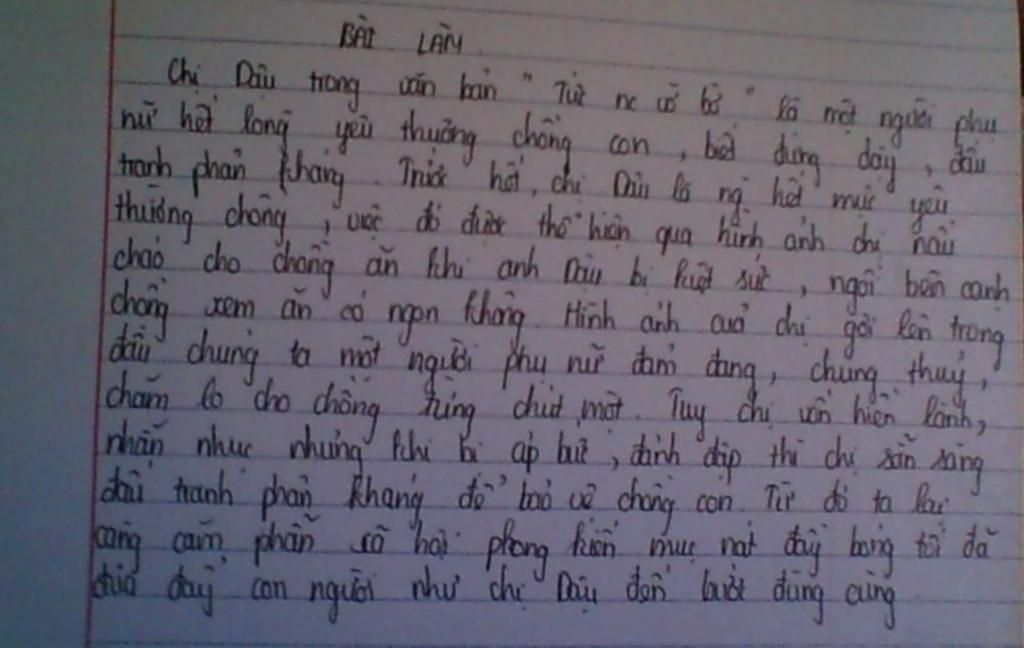 BÀI LÀM
Chị Dậu trong văn bản "Tức nc vỡ bờ" là một người phụ
nữ hết lòng yêu thương chồng con, biết đứng dậy, đấu
tranh phản kháng. Trước hết, chị Dậu là ng hết mực yêu
thương chồng, việc đó được thể hiện qua hình ảnh chị nấu
cháo cho chồng ăn khi anh Dậu bị kiệt sức, ngồi bên cạnh
chồng xem ăn có ngon không. Hình ảnh của chị gợi lên trong
đầu chúng ta một người phụ nữ đảm đang, chung thuỷ,
chăm lo cho chồng từng chút một. Tuy chị vốn hiền lành,
nhẫn nhục nhưng khi bị áp bức, đánh đập thì chị sẵn sàng
đấu tranh phản kháng để bảo vệ chồng con. Từ đó ta lại
càng căm phẫn xã hội phong kiến mục nát đầy bóng tối đã
đưa đẩy con người như chị Dậu đến bước đường cùng